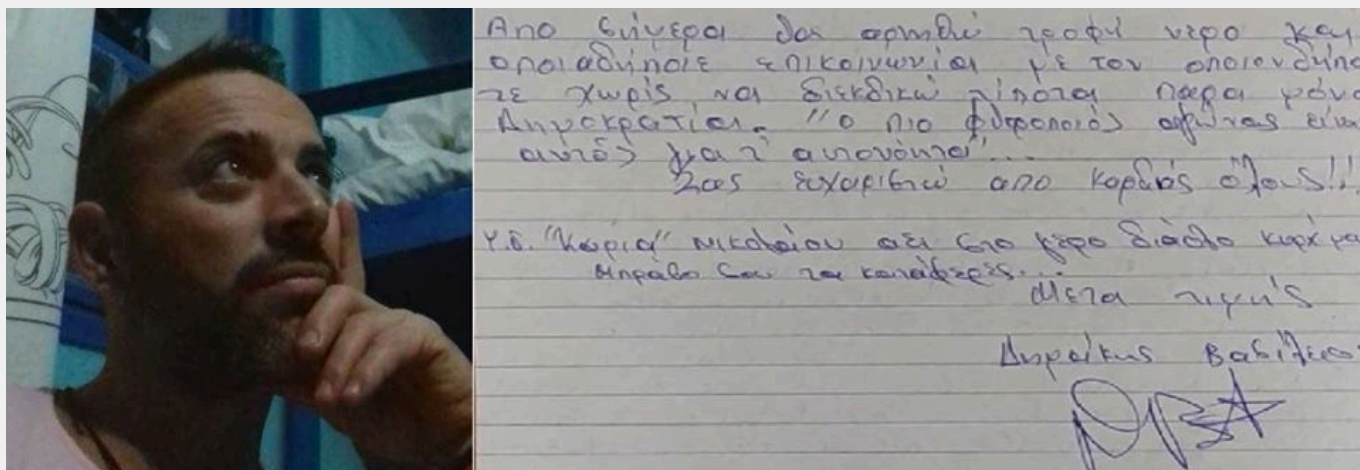 Απο σήμερα θα αρνηθώ τροφή νερο και
οποιαδήποτε επικοινωνία με τον οποιονδήπο
τε χωρίς να διεκδικώ τίποτα παρα μόνο
Δημοκρατία. "Ο πιο φθοροποιός αγώνας είναι
αυτός για τ' αυτονόητα"...
Σας ευχαριστώ απο καρδιάς όλους!!!
Υ.Γ. "Κυρία" Νικολαου στο
Μπράβο σου τα κατάφερες...
Μετα τιμής
Δημάκης Βασίλειος